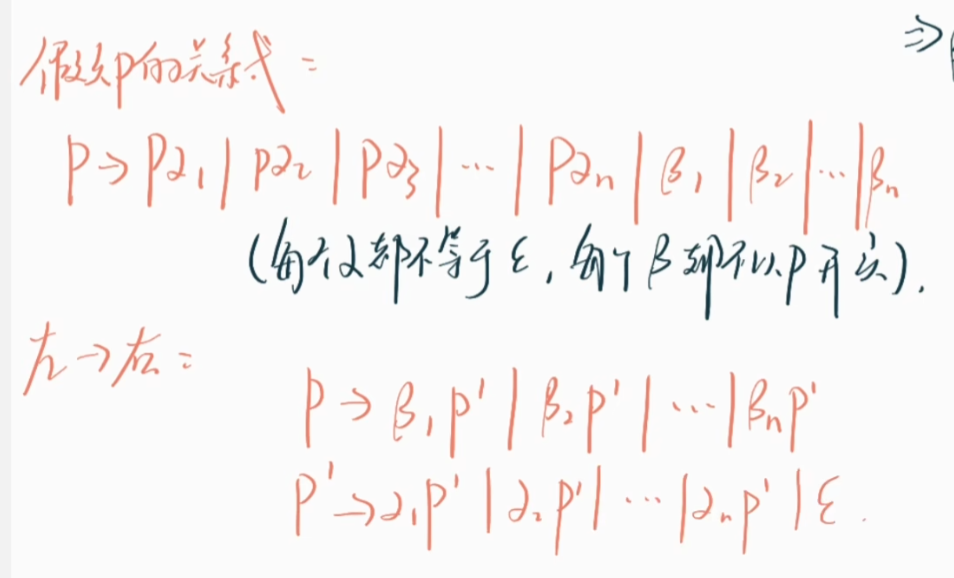 假如P的关系式:
⇒
P→Pα₁|Pα₂|Pα₃|…|Pαₙ|β₁|β₂|…|βₙ
(每个α都不等于ε,每个β都不以P开头).
左→右:
P→β₁P'|β₂P'|…|βₙP'
P'→α₁P'|α₂P'|…|αₙP'|ε.